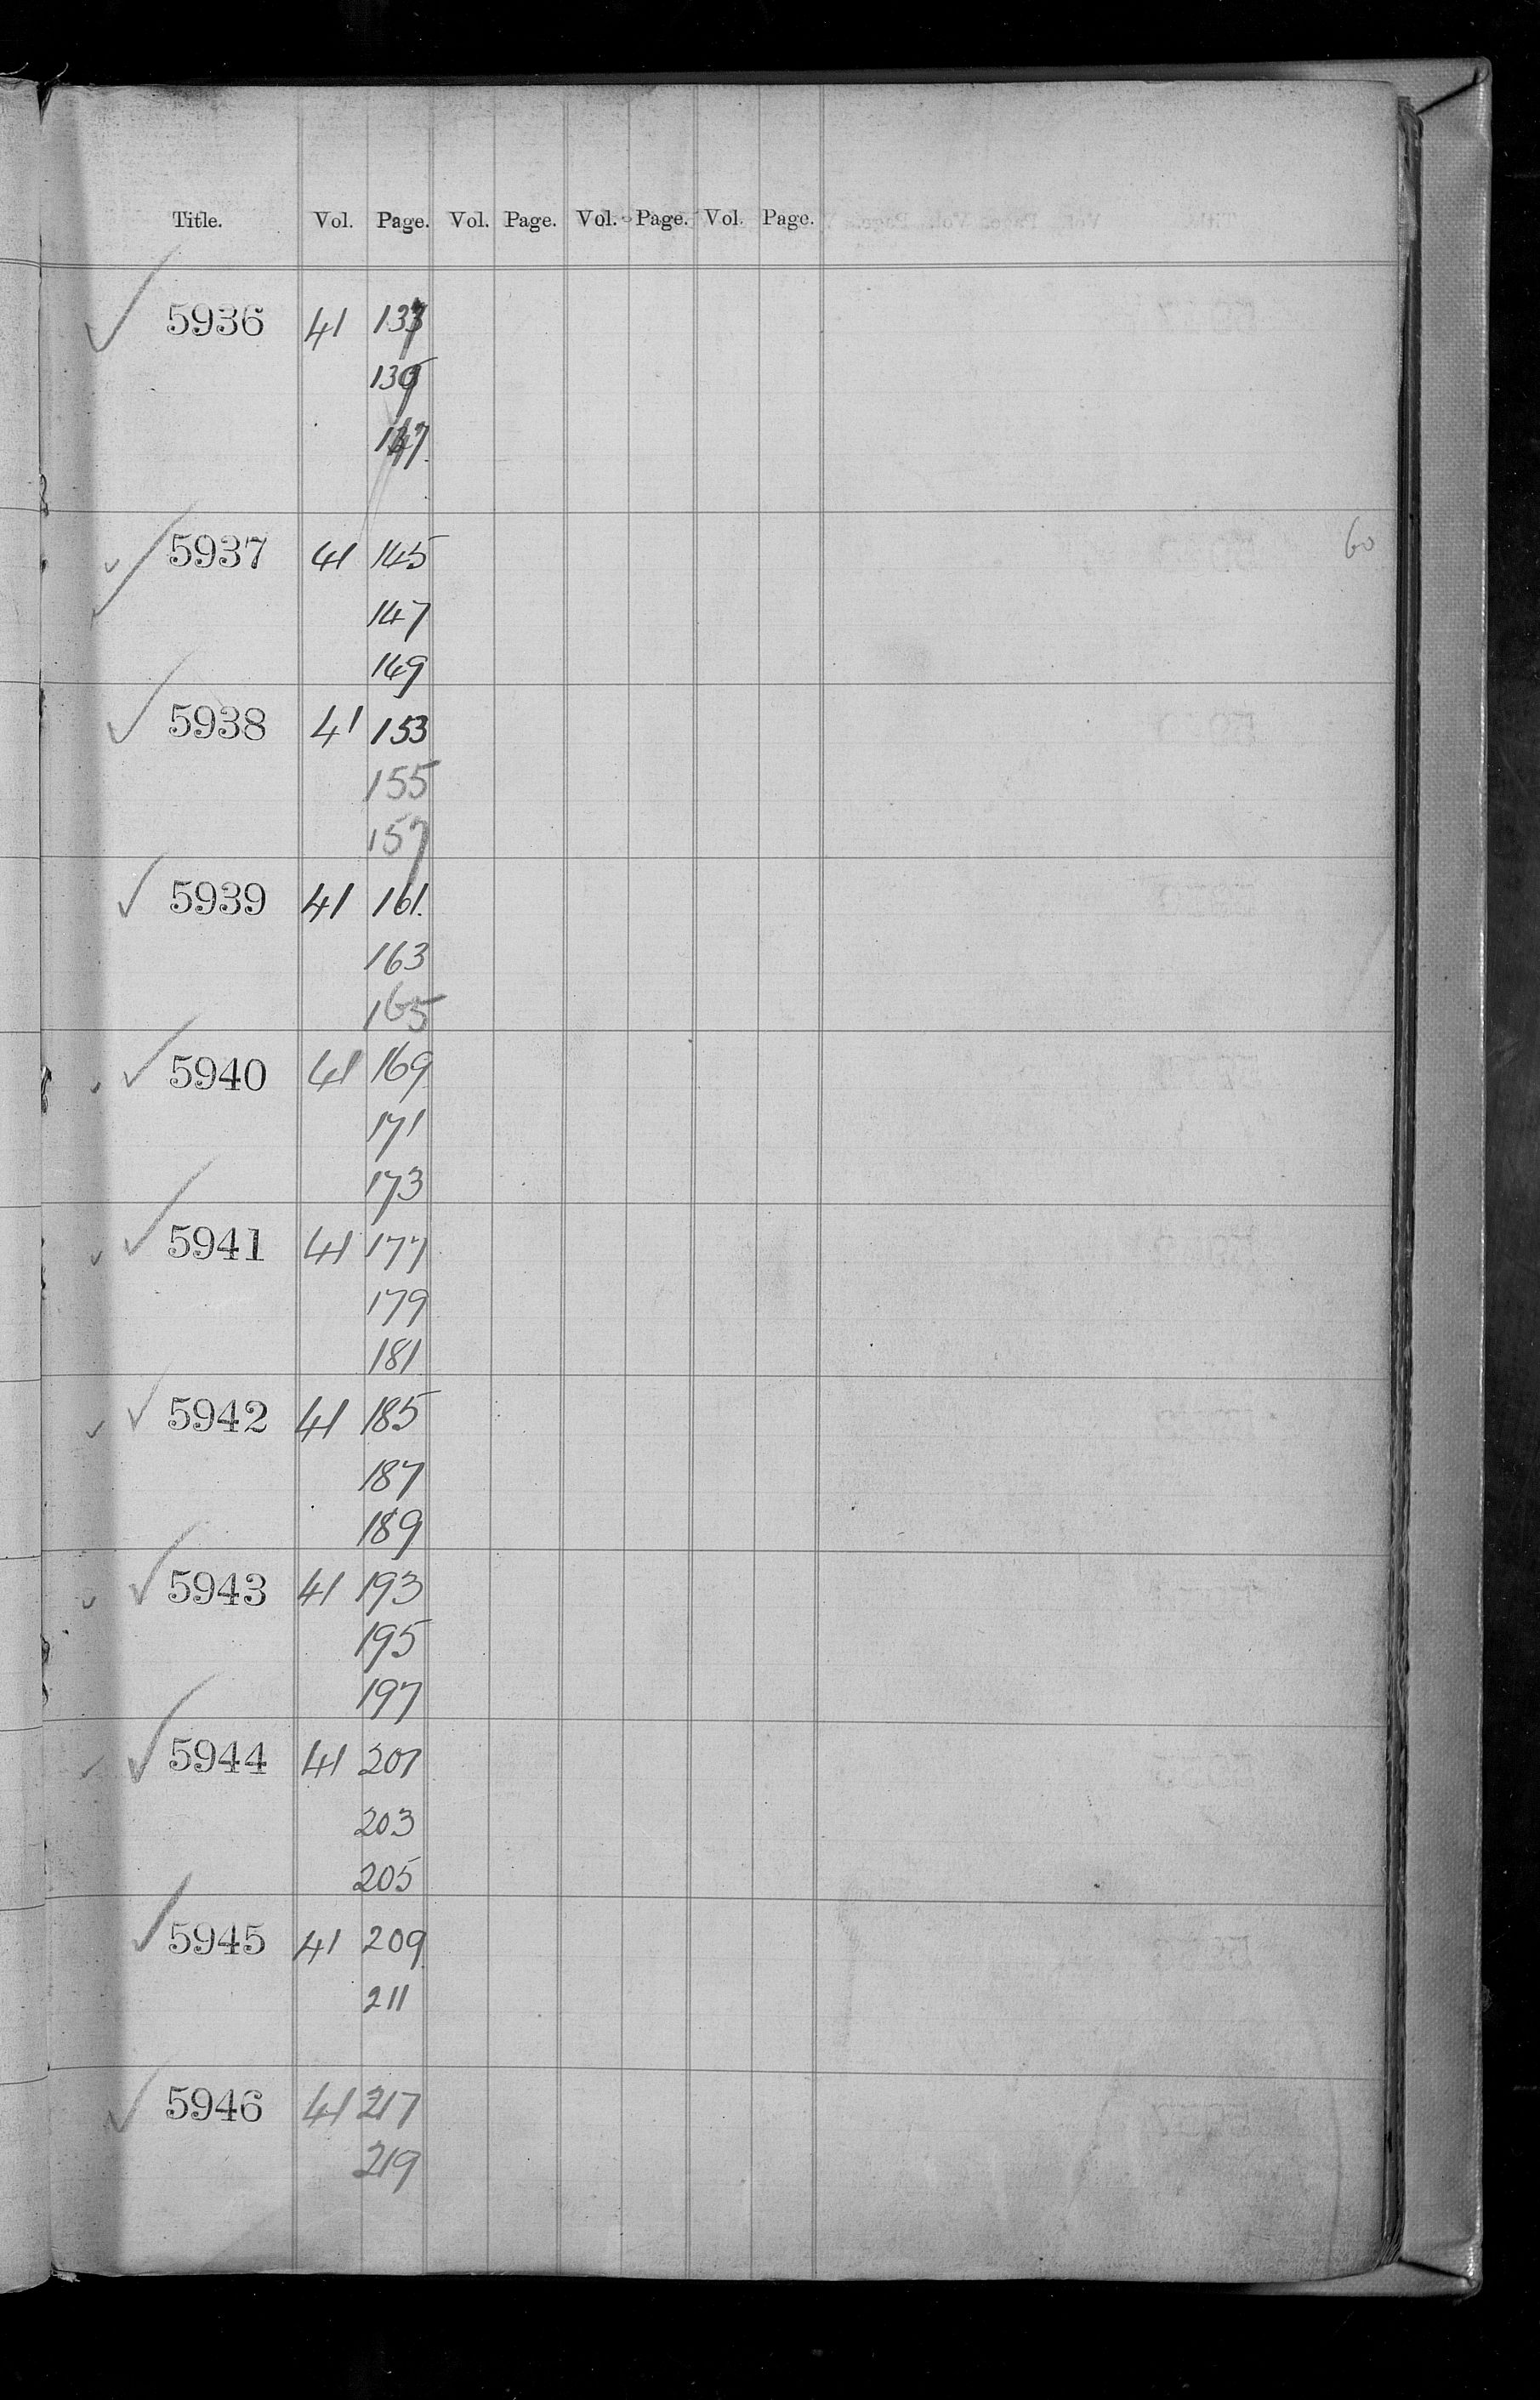 Title. Vol. Page. Vol. Page. Vol. Page. Vol. Page.
5936 41 137
139
147
5937 41 145
60
147
149
5938 41 153
155
157
5939 41 161.
163
165
5940 41 169
171
173
5941 41 177
179
181
5942 41 185
187
189
5943 41 193
195
197
5944 41 201
203
205
5945 41 209
211
5946 41 217
219